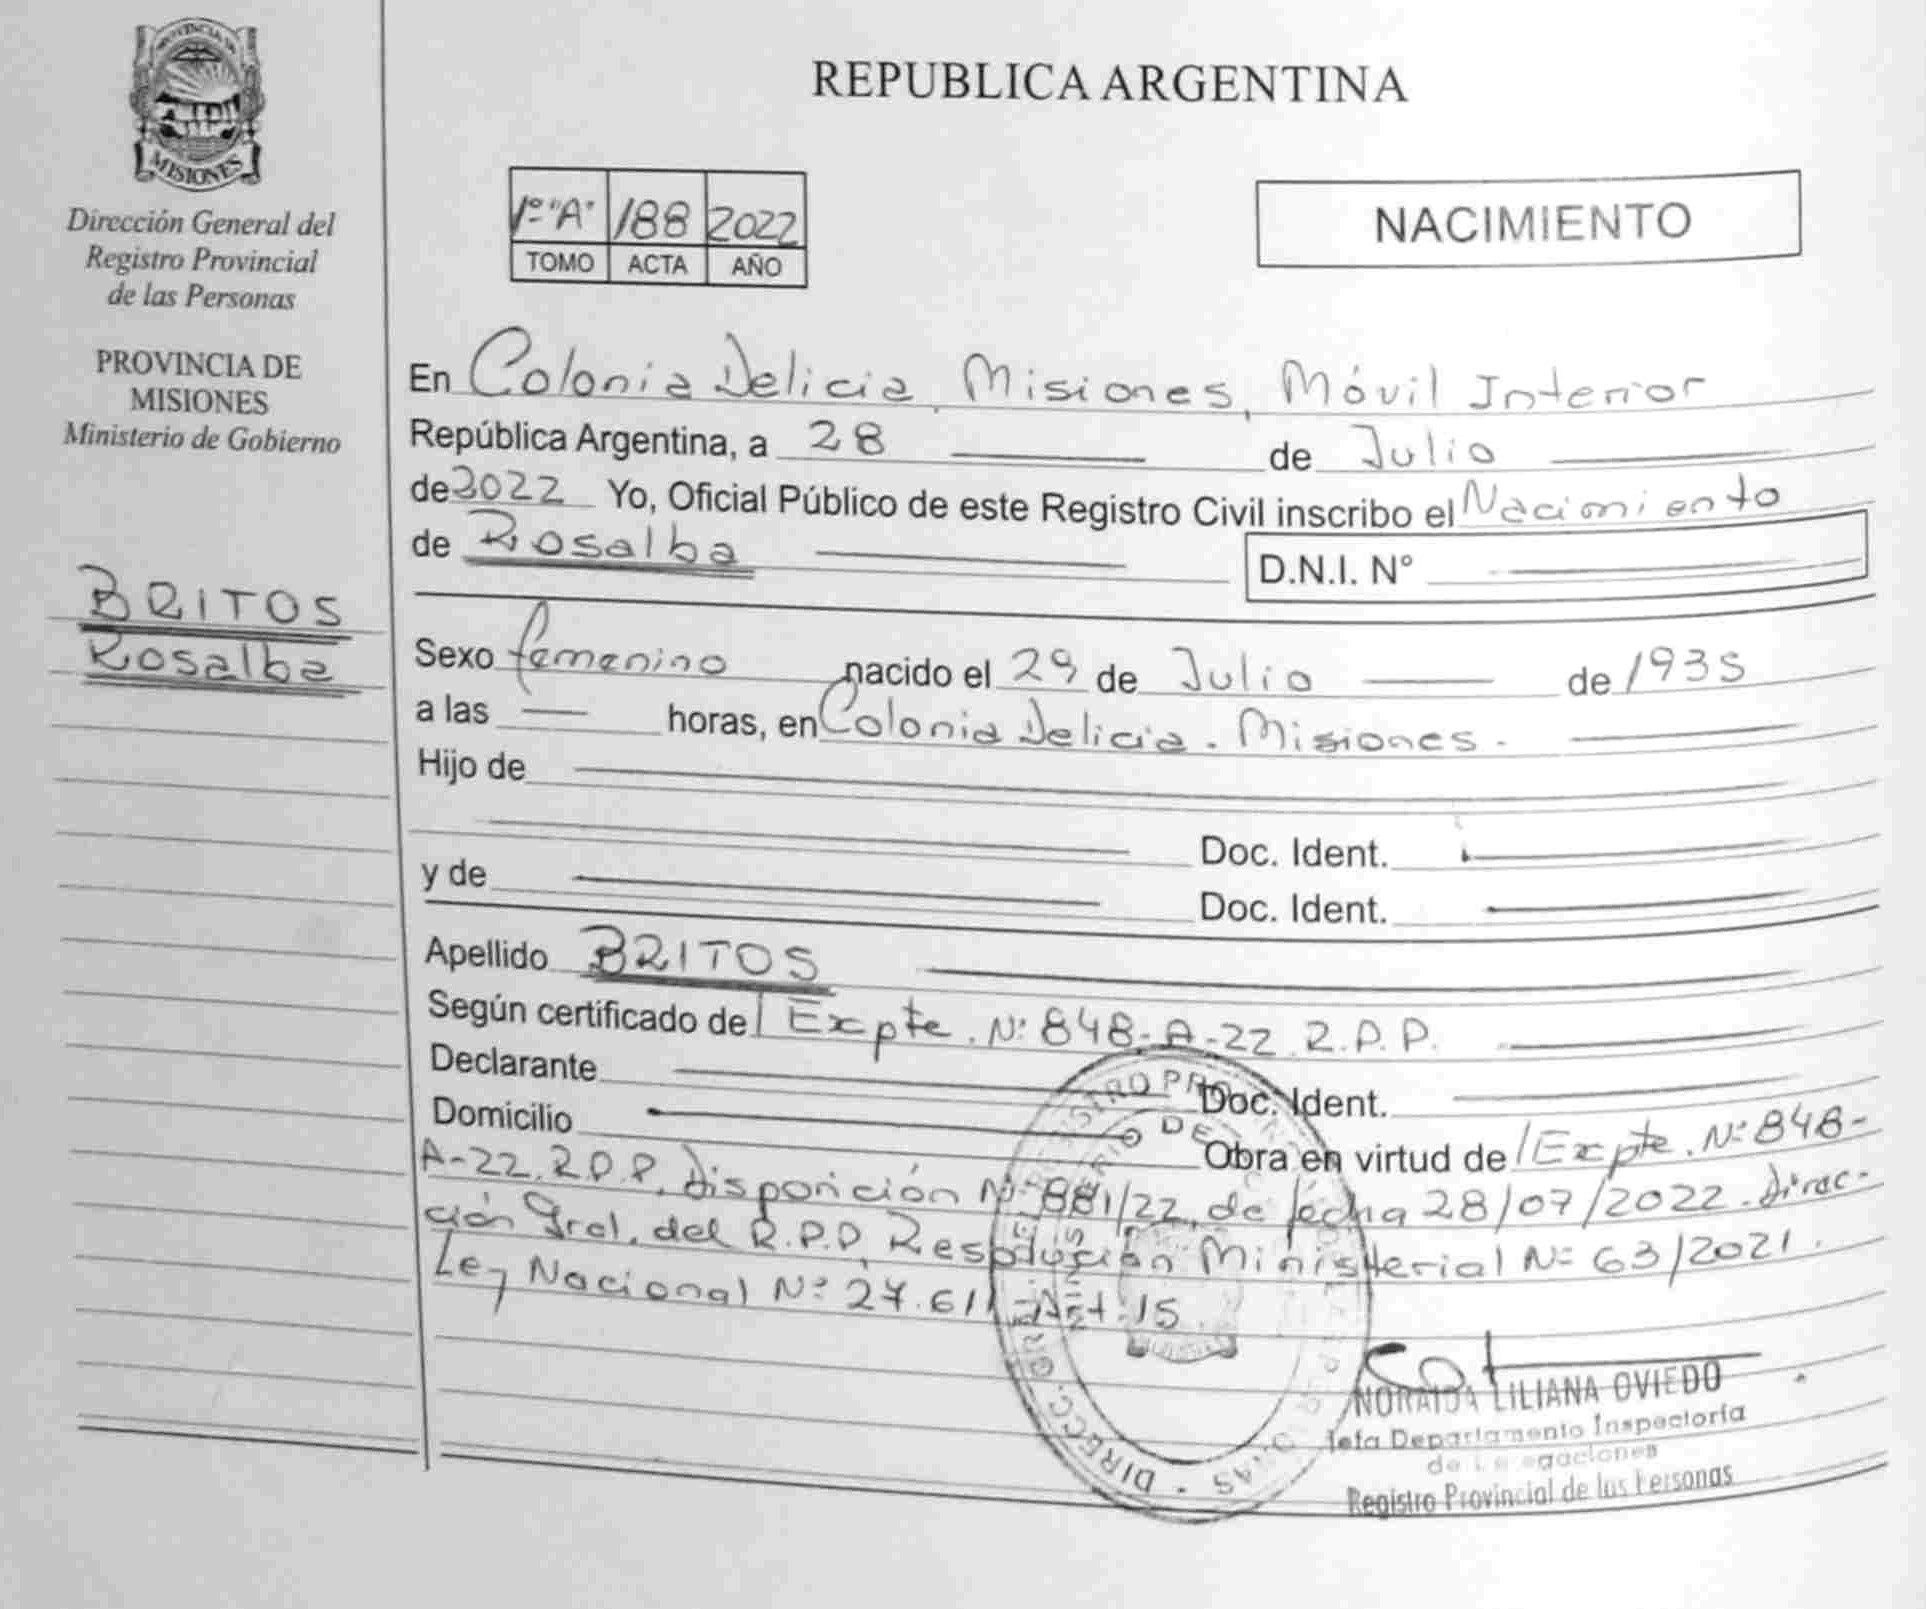 PROVINCIA DE
MISIONES
Dirección General del
Registro Provincial
de las Personas
PROVINCIA DE
MISIONES
Ministerio de Gobierno
BRITOS
Rosalba
REPUBLICA ARGENTINA
1º "A" 188 2022
TOMO ACTA AÑO
NACIMIENTO
En Colonia Delicia, Misiones, Móvil Interior
República Argentina, a 28 de Julio
de 2022 Yo, Oficial Público de este Registro Civil inscribo el Nacimiento
de Rosalba D.N.I. N°
Sexo femenino nacido el 29 de Julio de 1935
a las horas, en Colonia Delicia. Misiones.
Hijo de
Doc. Ident.
y de
Doc. Ident.
Apellido BRITOS
Según certificado de Expte. Nº 848-A-22 R.P.P.
Declarante Doc. Ident.
Domicilio
Obra en virtud de Expte. Nº 848-
A-22. R.P.P. Disposición Nº 881/22, de fecha 28/07/2022. Direc-
ción Gral. del R.P.P. Resolución Ministerial Nº 63/2021.
Ley Nacional Nº 27.611 - Art. 15.
NORAIDA LILIANA OVIEDO
Jefa Departamento Inspectoría
de
Registro Provincial de las Personas